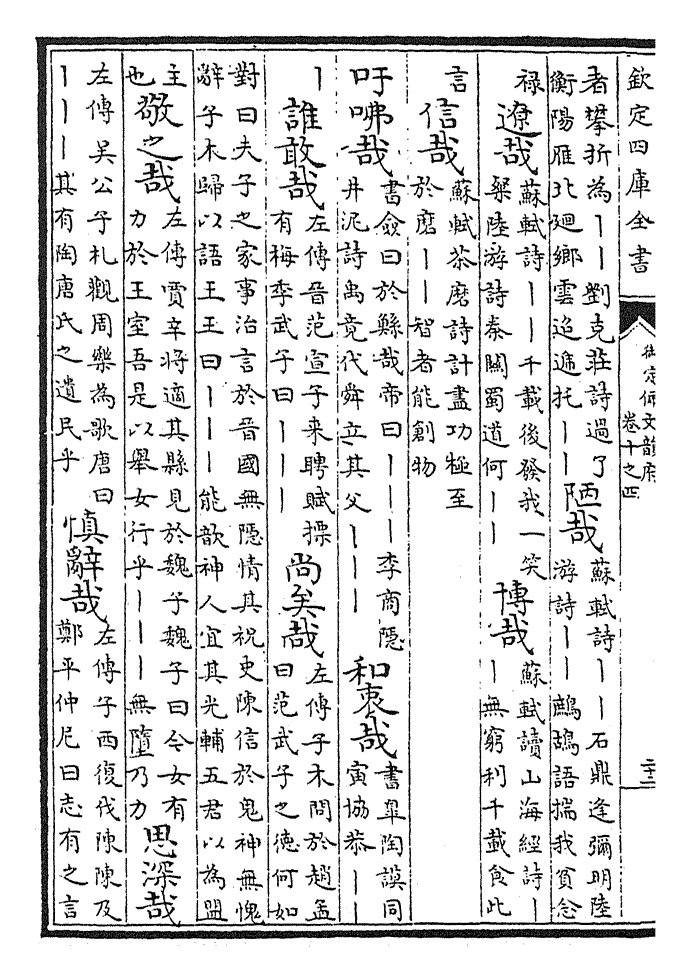 欽定四庫全書
御定佩文韻府
卷十之四
者攀折為丨丨劉克莊詩過了
衡陽雁北廻鄉雲迢遞托丨丨
陋哉
蘇軾詩丨丨石鼎逢彌明陸
游詩丨丨鷓鴣語揣我貧念
禄
遼哉
蘇軾詩丨丨千載後發我一笑
粲陸游詩秦關蜀道何丨丨
博哉
蘇軾讀山海經詩丨
丨無窮利千載食此
言
信哉
蘇軾茶磨詩計盡功極至
於磨丨丨智者能創物
吁咈哉
書僉曰於鯀哉帝曰丨丨丨李商隱
井泥詩禹竟代舜立其父丨丨丨
和衷哉
書臯陶謨同
寅協恭丨丨
丨
誰敢哉
左傳晉范宣子来聘賦摽
有梅季武子曰丨丨丨
尚矣哉
左傳子木問於趙孟
曰范武子之德何如
對曰夫子之家事治言於晉國無隱情其祝史陳信於鬼神無愧
辭子木歸以語王王曰丨丨丨能歆神人宜其光輔五君以為盟
主
也
敬之哉
左傳賈辛將適其縣見於魏子魏子曰今女有
力於王室吾是以舉女行乎丨丨丨無墮乃力
思深哉
左傳吳公子札觀周樂為歌唐曰
丨丨丨其有陶唐氏之遺民乎
慎辭哉
左傳子西復伐陳陳及
鄭平仲尼曰志有之言